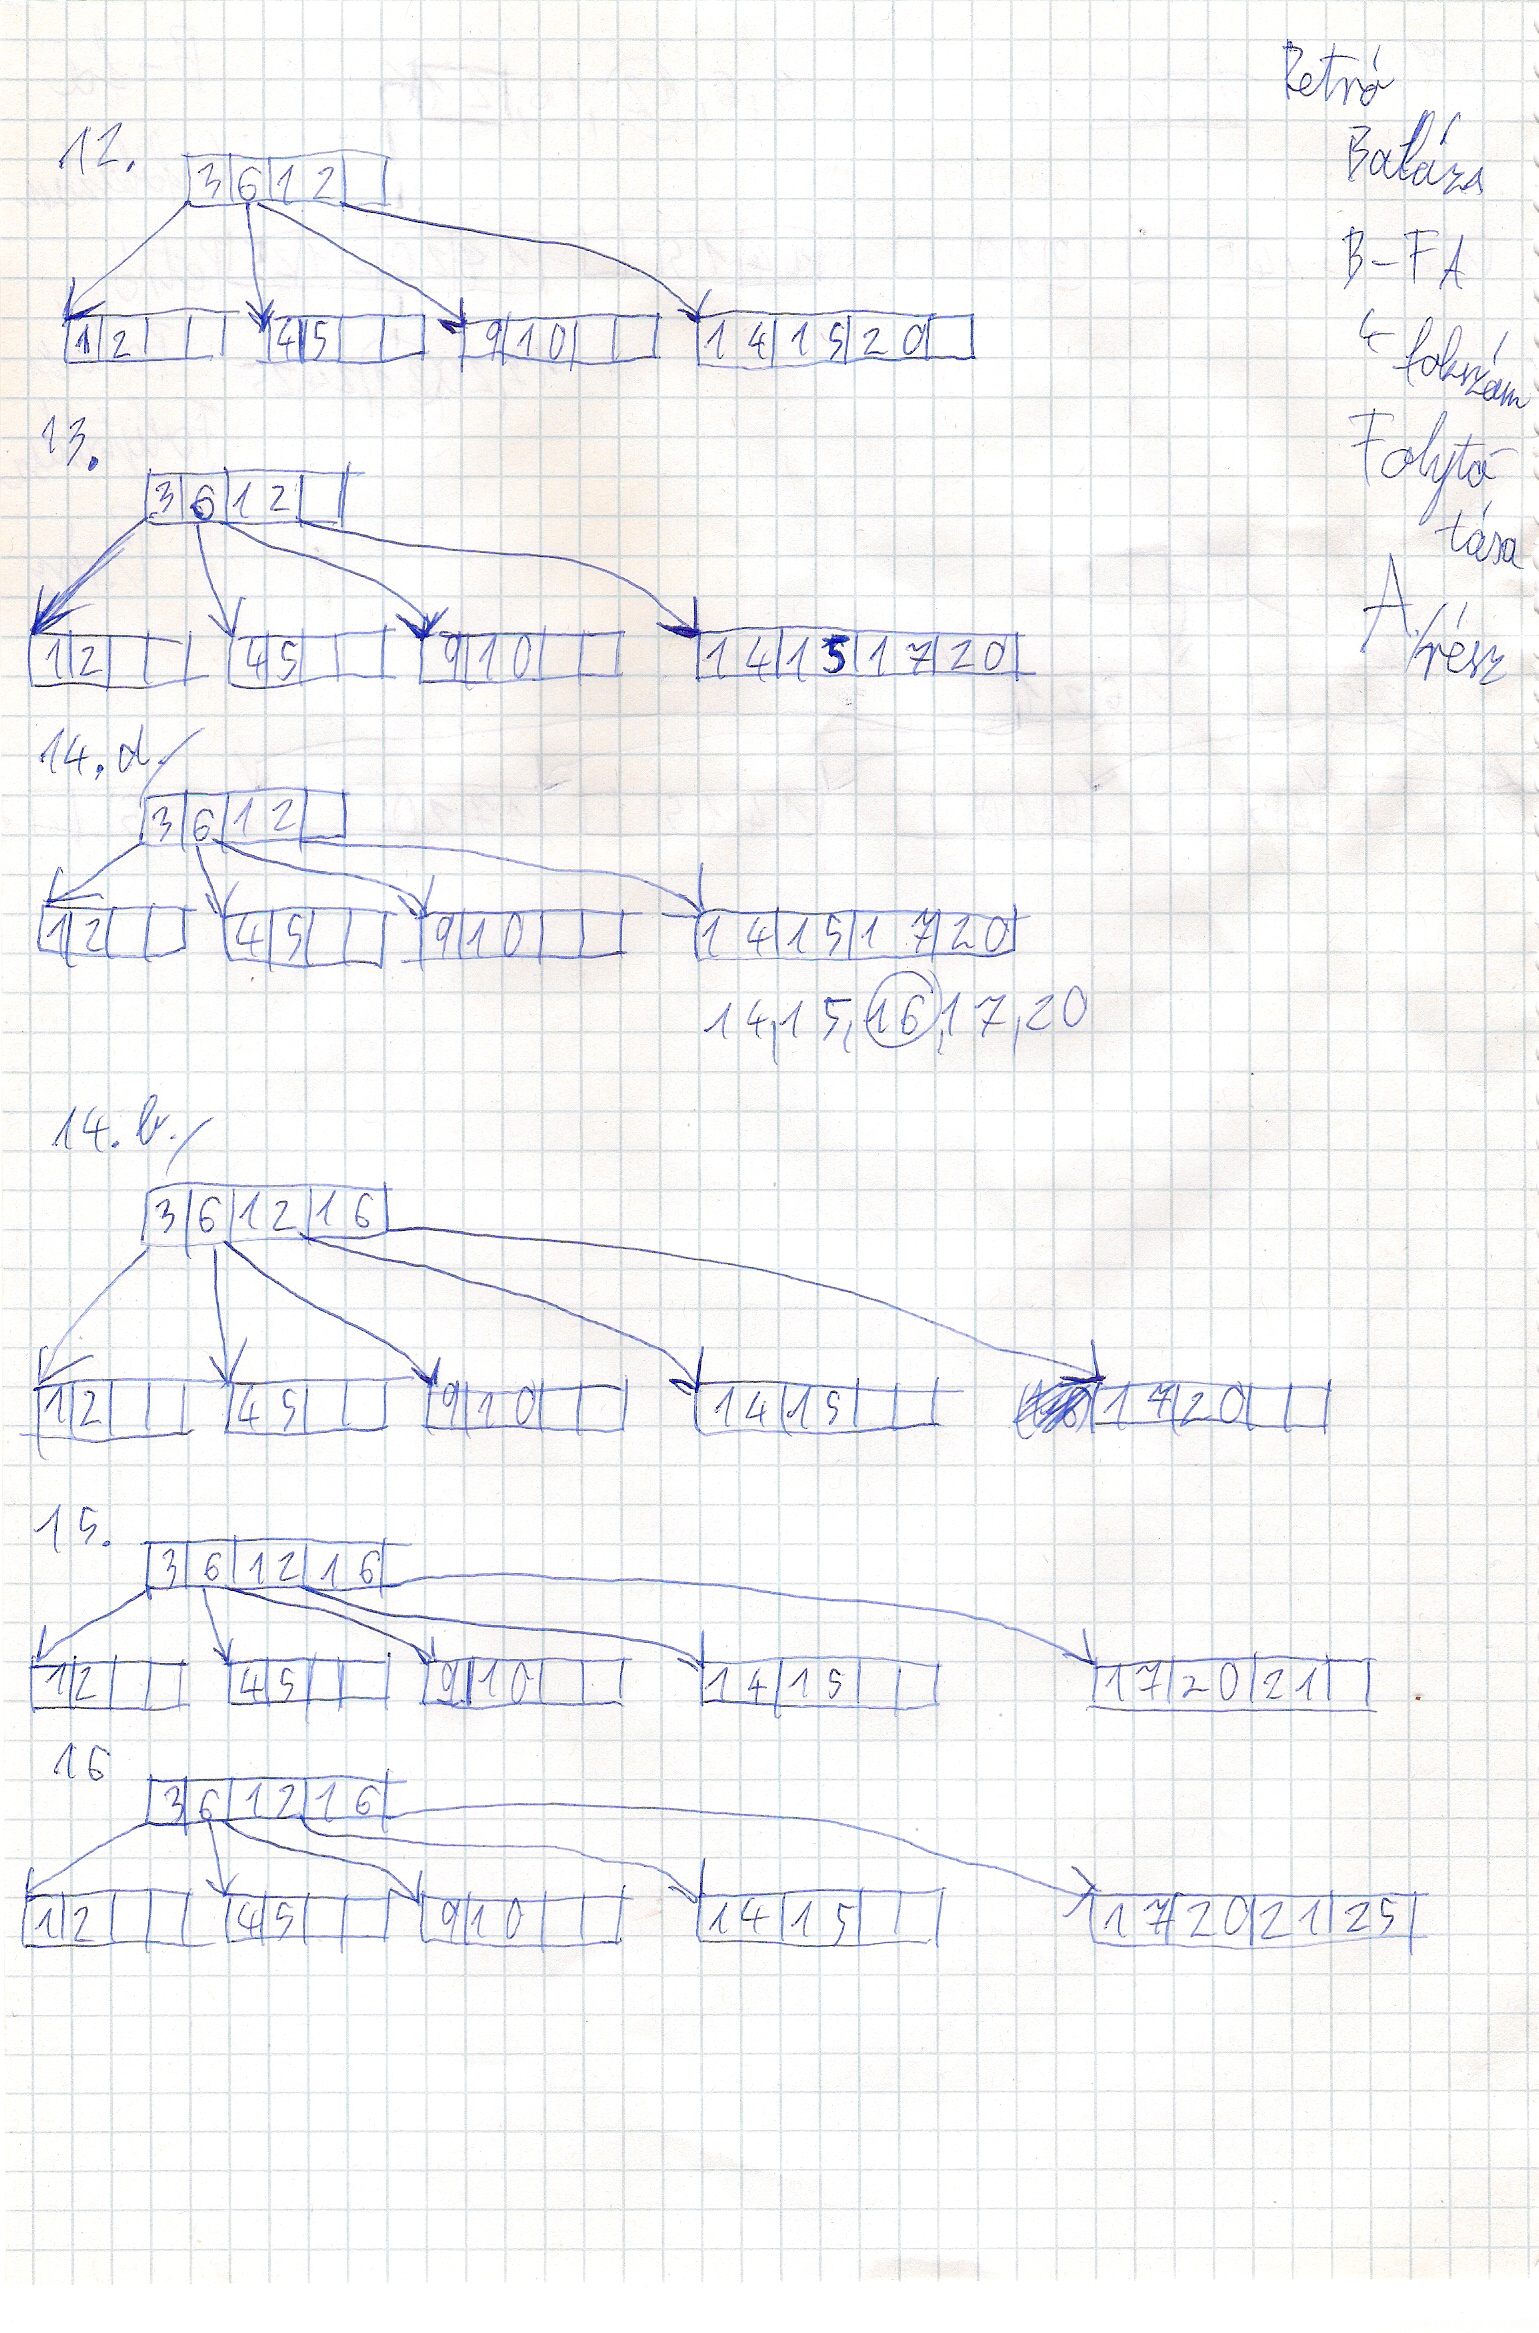 Petró
Balázs
B-FA
4 fokszám
Folyta
tása
A/rész
12.
3 6 12
1 2 4 5 9 10 14 15 20
13.
3 6 12
1 2 4 5 9 10 14 15 17 20
14. a./
3 6 12
1 2 4 5 9 10 14 15 17 20
14,15,16,17,20
14. b./
3 6 12 16
1 2 4 5 9 10 14 15 17 20
15.
3 6 12 16
1 2 4 5 9 10 14 15 17 20 21
16
3 6 12 16
1 2 4 5 9 10 14 15 17 20 21 25